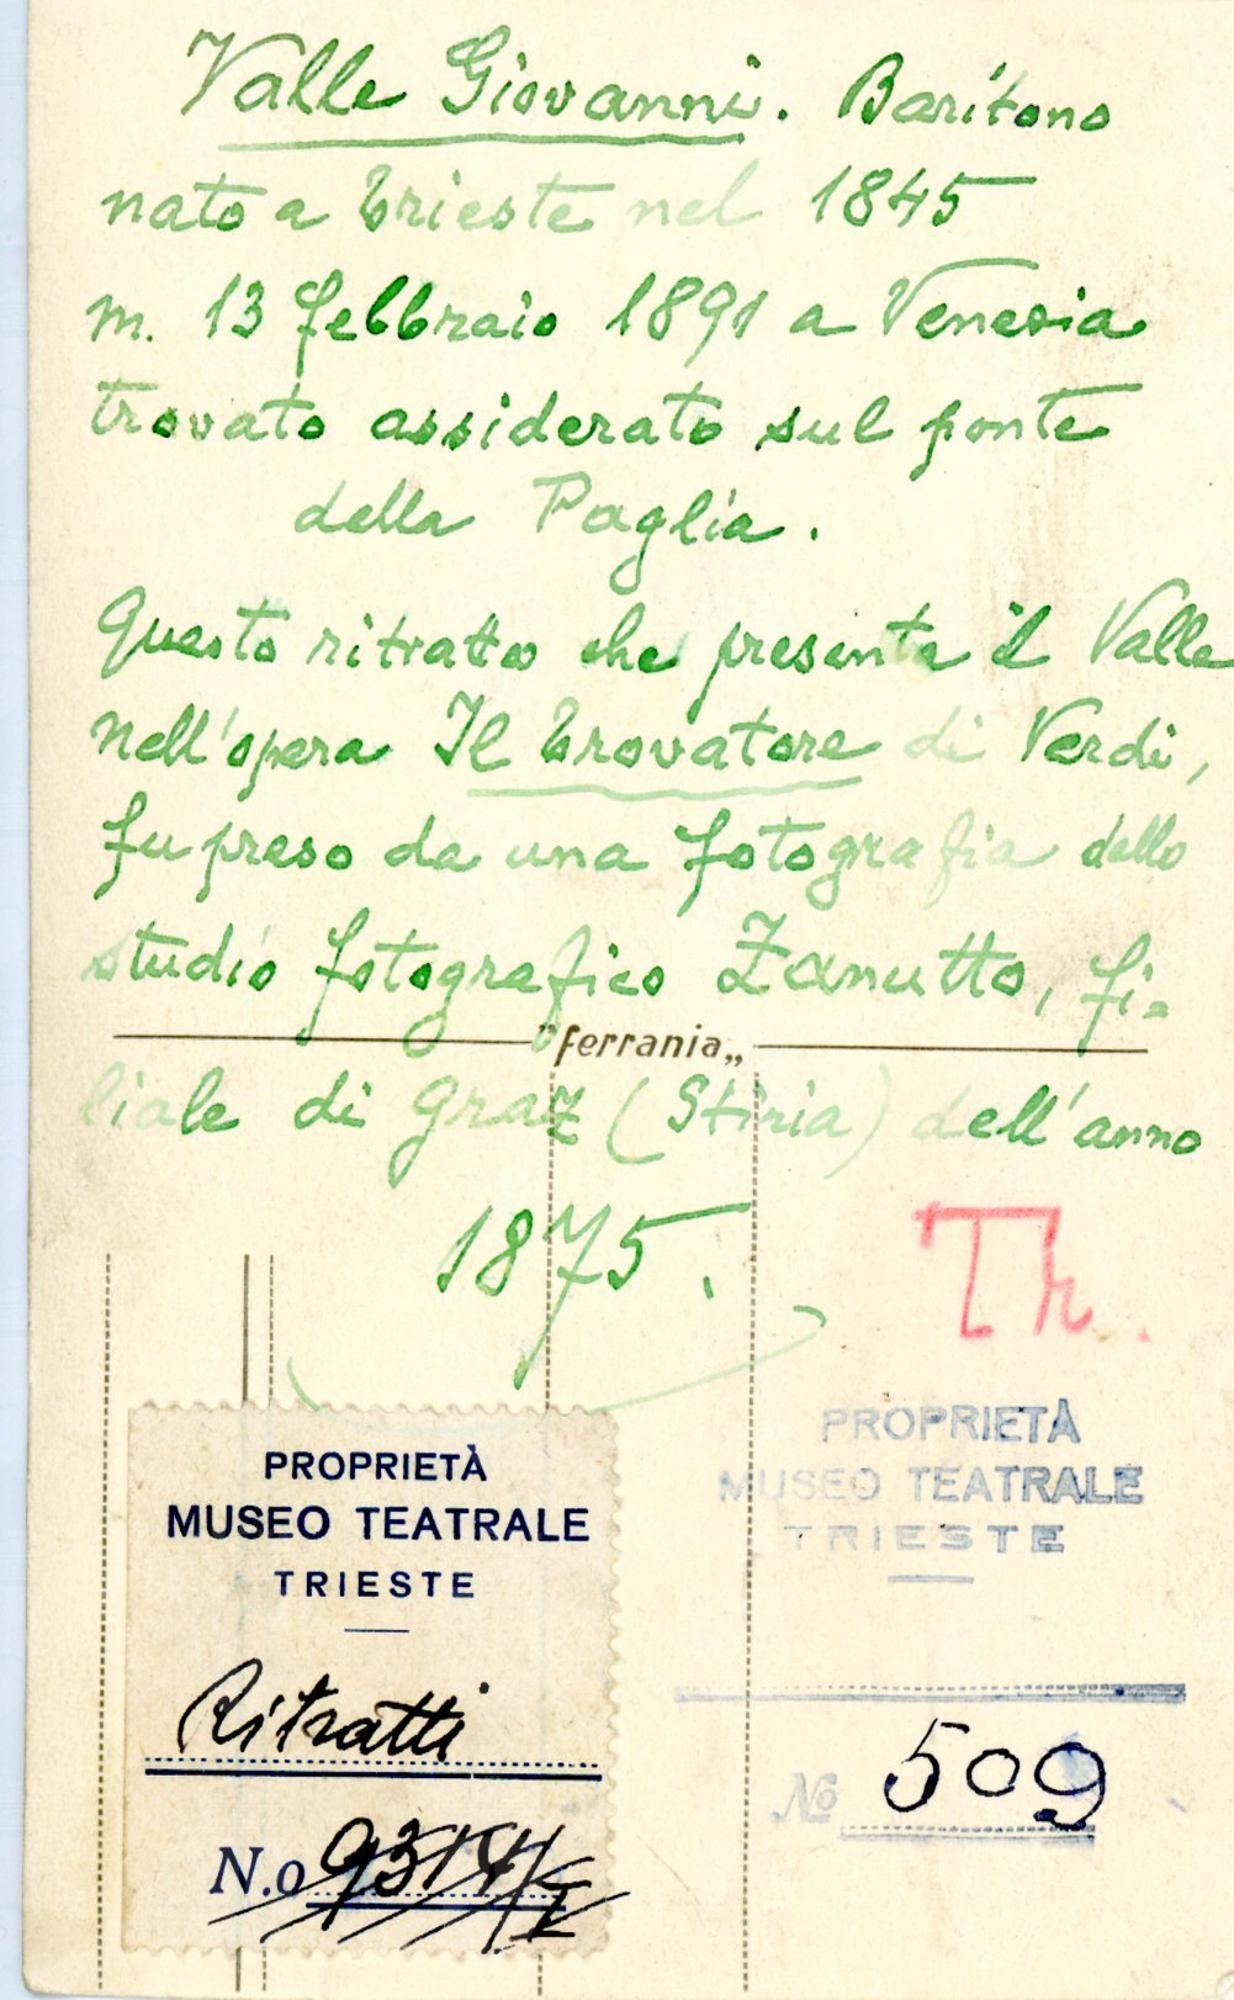 Valle Giovanni. Baritono
nato a Trieste nel 1845
m. 13 febbraio 1891 a Venezia
trovato assiderato sul ponte
della Paglia.
Questo ritratto che presenta il Valle
nell'opera Il Trovatore di Verdi,
fu preso da una fotografia dello
studio fotografico Zanutto, fi=
"ferrania„
liale di Graz (Stiria) dell'anno
1875.
Tr.
PROPRIETÀ
MUSEO TEATRALE
TRIESTE
Ritratti
N.o
PROPRIETÀ
MUSEO TEATRALE
TRIESTE
No 509